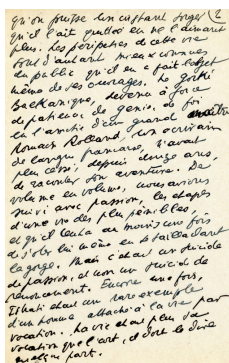 qu'on puisse un instant songer (2
qu'il ait quitté en ne l'aimant
plus. Les péripéties de cette vie
sont d'autant mieux connues
du public qu'il en a fait l'objet
même de ses ouvrages. Le Gorki
Balkanique, devenu à force
de patience, de génie, de foi
en l'amitié d'un grand maître
Romain Rolland, un écrivain
de langue française, n'avait
plus cessé, depuis douze ans,
de raconter son aventure. De
volume en volume, nous avions
suivi avec passion, les étapes
d'une vie des plus pénibles,
et qu'il tenta au moins une fois
de s'ôter lui même en se tailladant
la gorge. Mais c'était un suicide
de passion, et non un suicide de
renoncement. Encore une fois,
Istrati était un rare exemple
d'un homme attaché à la vie par
vocation. La vie était plus sa
vocation que l'art, il doit le dire
quelque part.